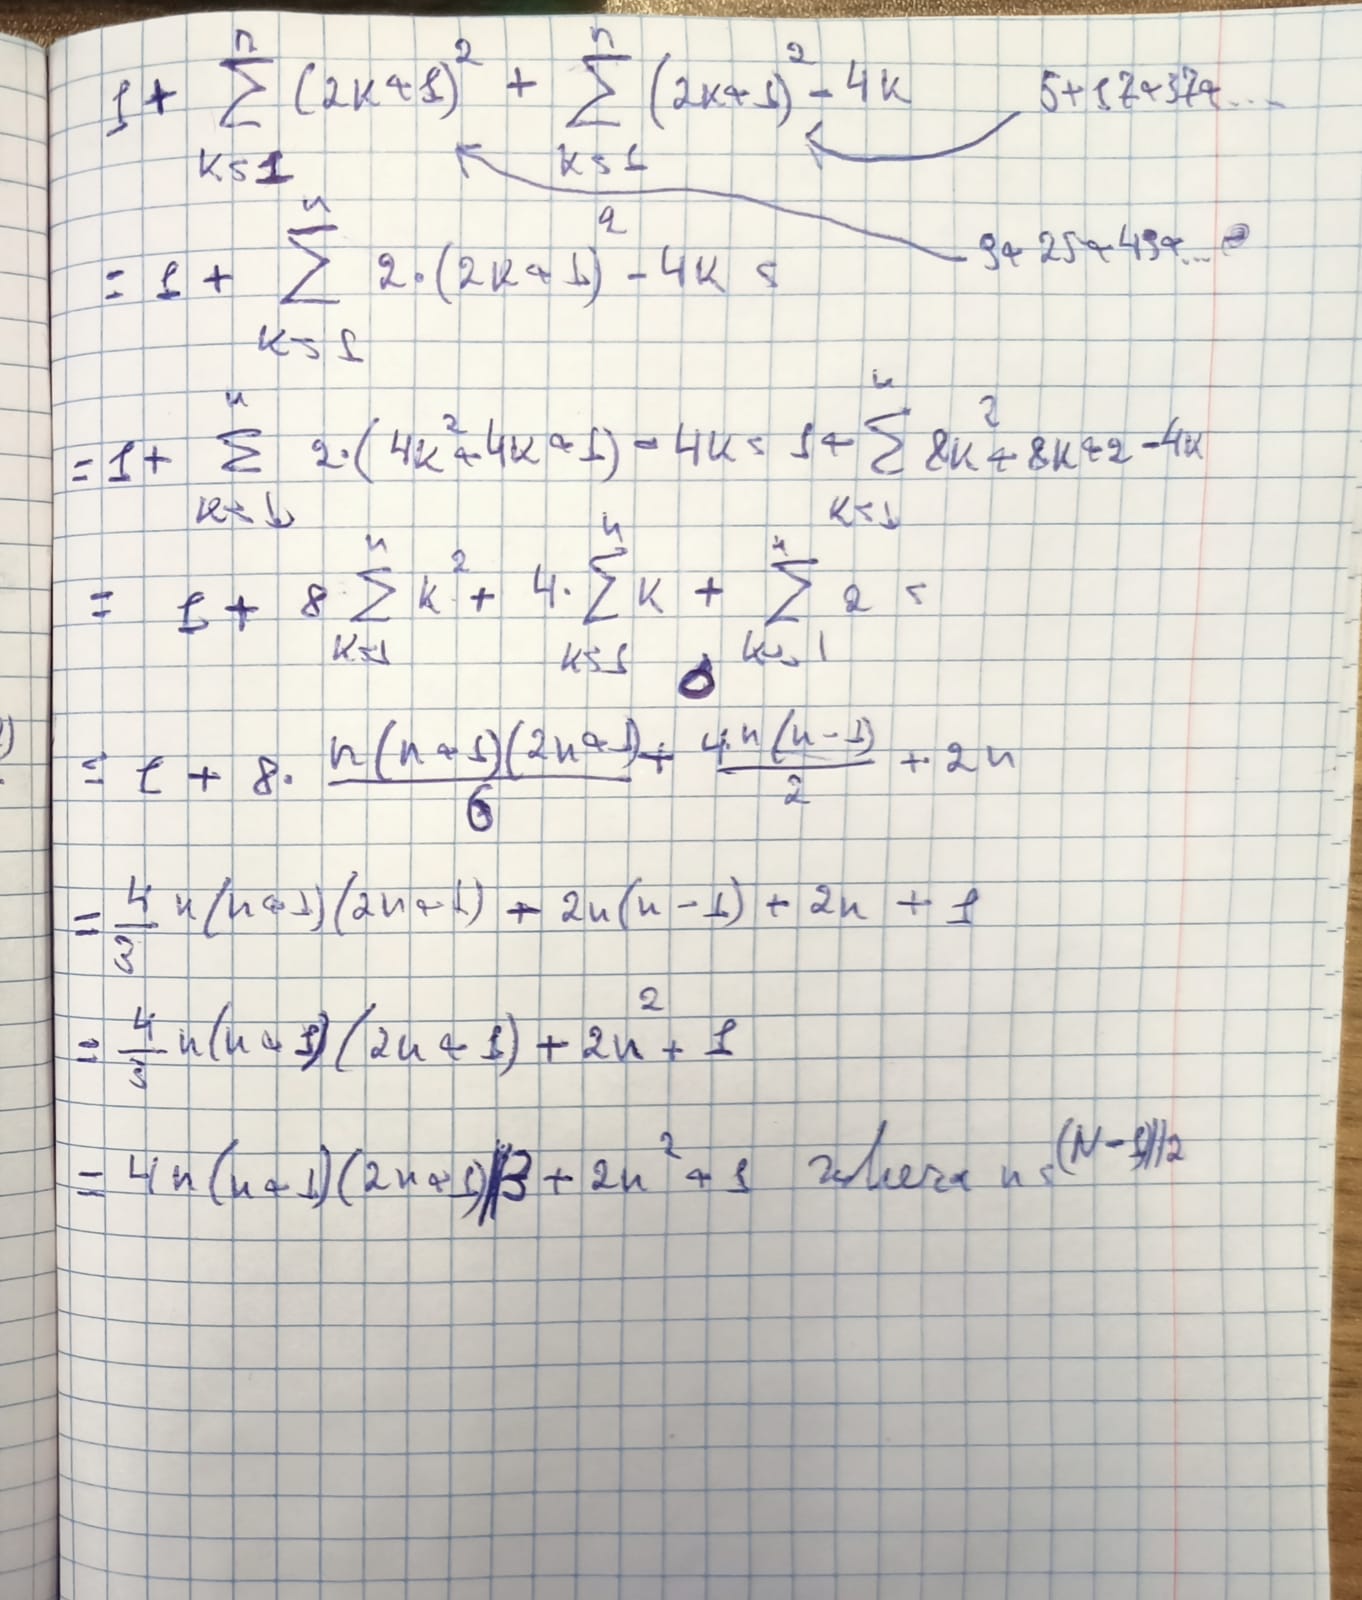 1 + ∑_{k=1}^{n} (2k+1)^2 + ∑_{k=1}^{n} (2k+1)^2 - 4k 5+17+37+...
9+25+49+...
= 1 + ∑_{k=1}^{n} 2·(2k+1)^2 - 4k =
= 1 + ∑_{k=1}^{n} 2·(4k^2+4k+1) - 4k = 1 + ∑_{k=1}^{n} 8k^2+8k+2-4k
= 1 + 8 ∑_{k=1}^{n} k^2 + 4·∑_{k=1}^{n} k + ∑_{k=1}^{n} 2 =
= 1 + 8· n(n+1)(2n+1)/6 + 4·n(n-1)/2 + 2n
= 4/3 n(n+1)(2n+1) + 2n(n-1) + 2n + 1
= 4/3 n(n+1)(2n+1) + 2n^2 + 1
= 4n(n+1)(2n+1)//3 + 2n^2 + 1 where n = (N-1)//2